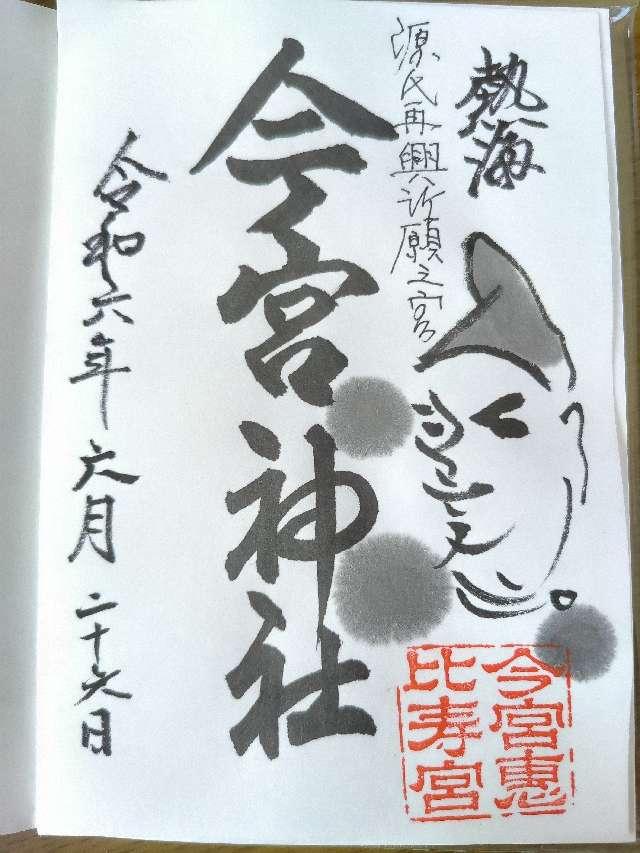 熱海
源氏再興祈願之宮
今宮神社
令和六年六月二十六日
今宮恵
比寿宮